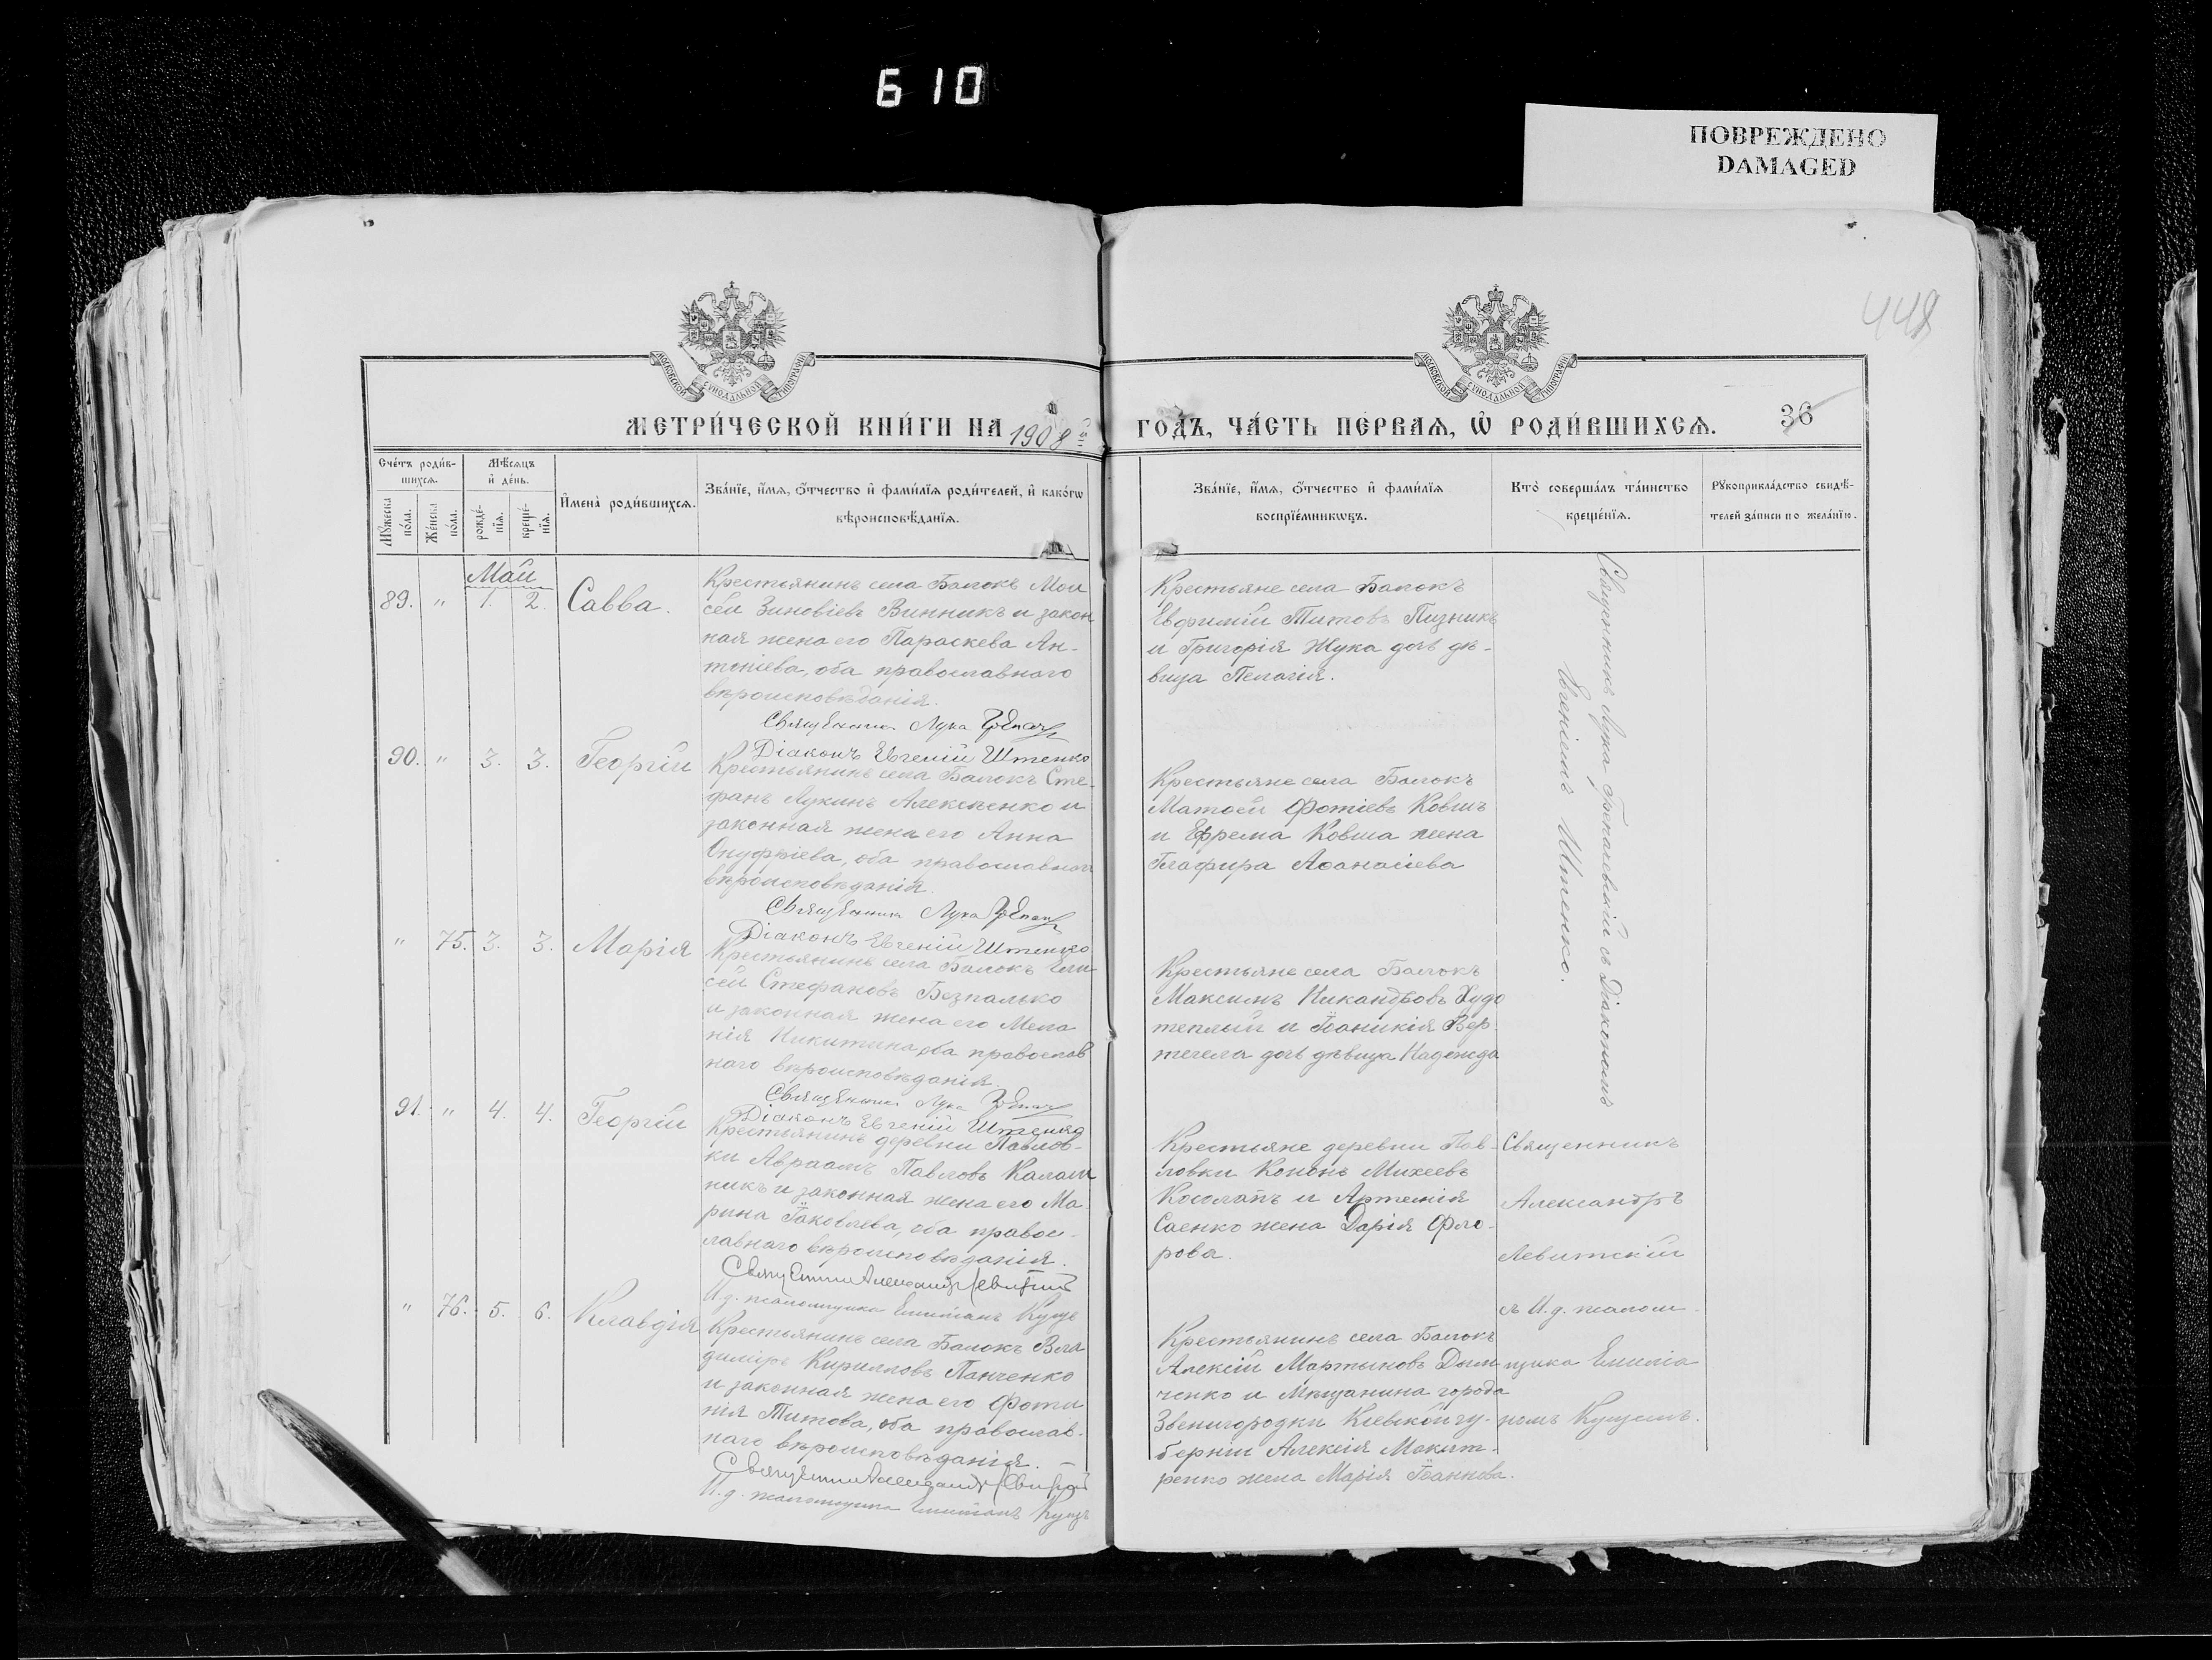 610
ПОВРЕЖДЕНО
DAMAGED
448
МОСКОВСКОЙ СУНОДАЛЬНОЙ ТИПОГРАФІИ
МОСКОВСКОЙ СУНОДАЛЬНОЙ ТИПОГРАФІИ
МЕТРИ́ЧЕСКОЙ КНИ́ГИ НА 1908й
ГО́ДЪ, ЧА́СТЬ ПЕ́РВАѦ, Ѡ҆ РОДИ́ВШИХСѦ.
36
Сче́тъ роди́в-
шихсѧ.
Мꙋ́жеска
по́ла.
Же́нска
по́ла.
Мѣ́сѧцъ
и҆ де́нь.
рожде́-
нїѧ.
креще́-
нїѧ.
И҆мена̀ роди́вшихсѧ.
Зва́нїе, и҆́мѧ, ѻ҆́тчество и҆ фами́лїѧ роди́телей, и҆ како́гѡ
вѣроисповѣ́данїѧ.
Зва́нїе, и҆́мѧ, ѻ҆́тчество и҆ фами́лїѧ
воспрїе́мникѡвъ.
Кто̀ соверша́лъ та́инство
креще́нїѧ.
Рꙋкоприкла́дство свидѣ́-
телей за́писи по жела́нїю.
Май
89. " 1. 2. Савва.
Крестьянинъ села Балокъ Мои
сей Зиновіевъ Винникъ и закон
ная жена его Параскева Ан-
тоніева, оба православнаго
вѣроисповѣданія.
Священникъ Лука
Діаконъ Евгеній Штенко
Крестьяне села Балокъ
Евфимій Титовъ Пизникъ
и Григорія Жука дочь дѣ-
вица Пелагія.
Священникъ Лука съ Діакономъ
Евгеніемъ Штенко.
90. " 3. 3. Георгій
Крестьянинъ села Балокъ Сте
фанъ Лукинъ Алексѣенко и
законная жена его Анна
Онуфріева, оба православнаго
вѣроисповѣданія.
Священникъ Лука
Діаконъ Евгеній Штенко
Крестьяне села Балокъ
Матѳей Фотіевъ Ковшъ
и Ефрема Ковша жена
Глафира Аѳанасіева
" 75. 3. 3. Марія
Крестьянинъ села Балокъ Ели
сей Стефановъ Безпалько
и законная жена его Мела
нія Никитина, оба православ
наго вѣроисповѣданія.
Священникъ Лука
Діаконъ Евгеній Штенко
Крестьяне села Балокъ
Максимъ Никандровъ Худо
теплый и Іоанникія Вер-
тегела дочь дѣвица Надежда
91. " 4. 4. Георгій
Крестьянинъ деревни Павлов-
ки Авраамъ Павловъ Калаш
никъ и законная жена его Ма
рина Іаковлева, оба правос-
лавнаго вѣроисповѣданія.
Священникъ Александръ Левитскій
И.д. псаломщика Емиліанъ Кущъ
Крестьяне деревни Пав-
ловки Кононъ Михеевъ
Косолапъ и Артемія
Саенко жена Дарія Фло-
рова.
Священникъ
Александръ
Левитскій
съ И.д. псалом-
щика Емиліа
номъ Кущемъ.
" 76. 5. 6. Клавдія
Крестьянинъ села Балокъ Вла
диміръ Кирилловъ Панченко
и законная жена его Фоти
нія Титова, оба православ-
наго вѣроисповѣданія. —
Священникъ Александръ Левитскій
И.д. псаломщика Емиліанъ Кущъ
Крестьянинъ села Балокъ
Алексій Мартыновъ Дым
ченко и Мѣщанина города
Звенигородки Кіевской гу-
берніи Алексія Макит-
ренко жена Марія Іоаннова.